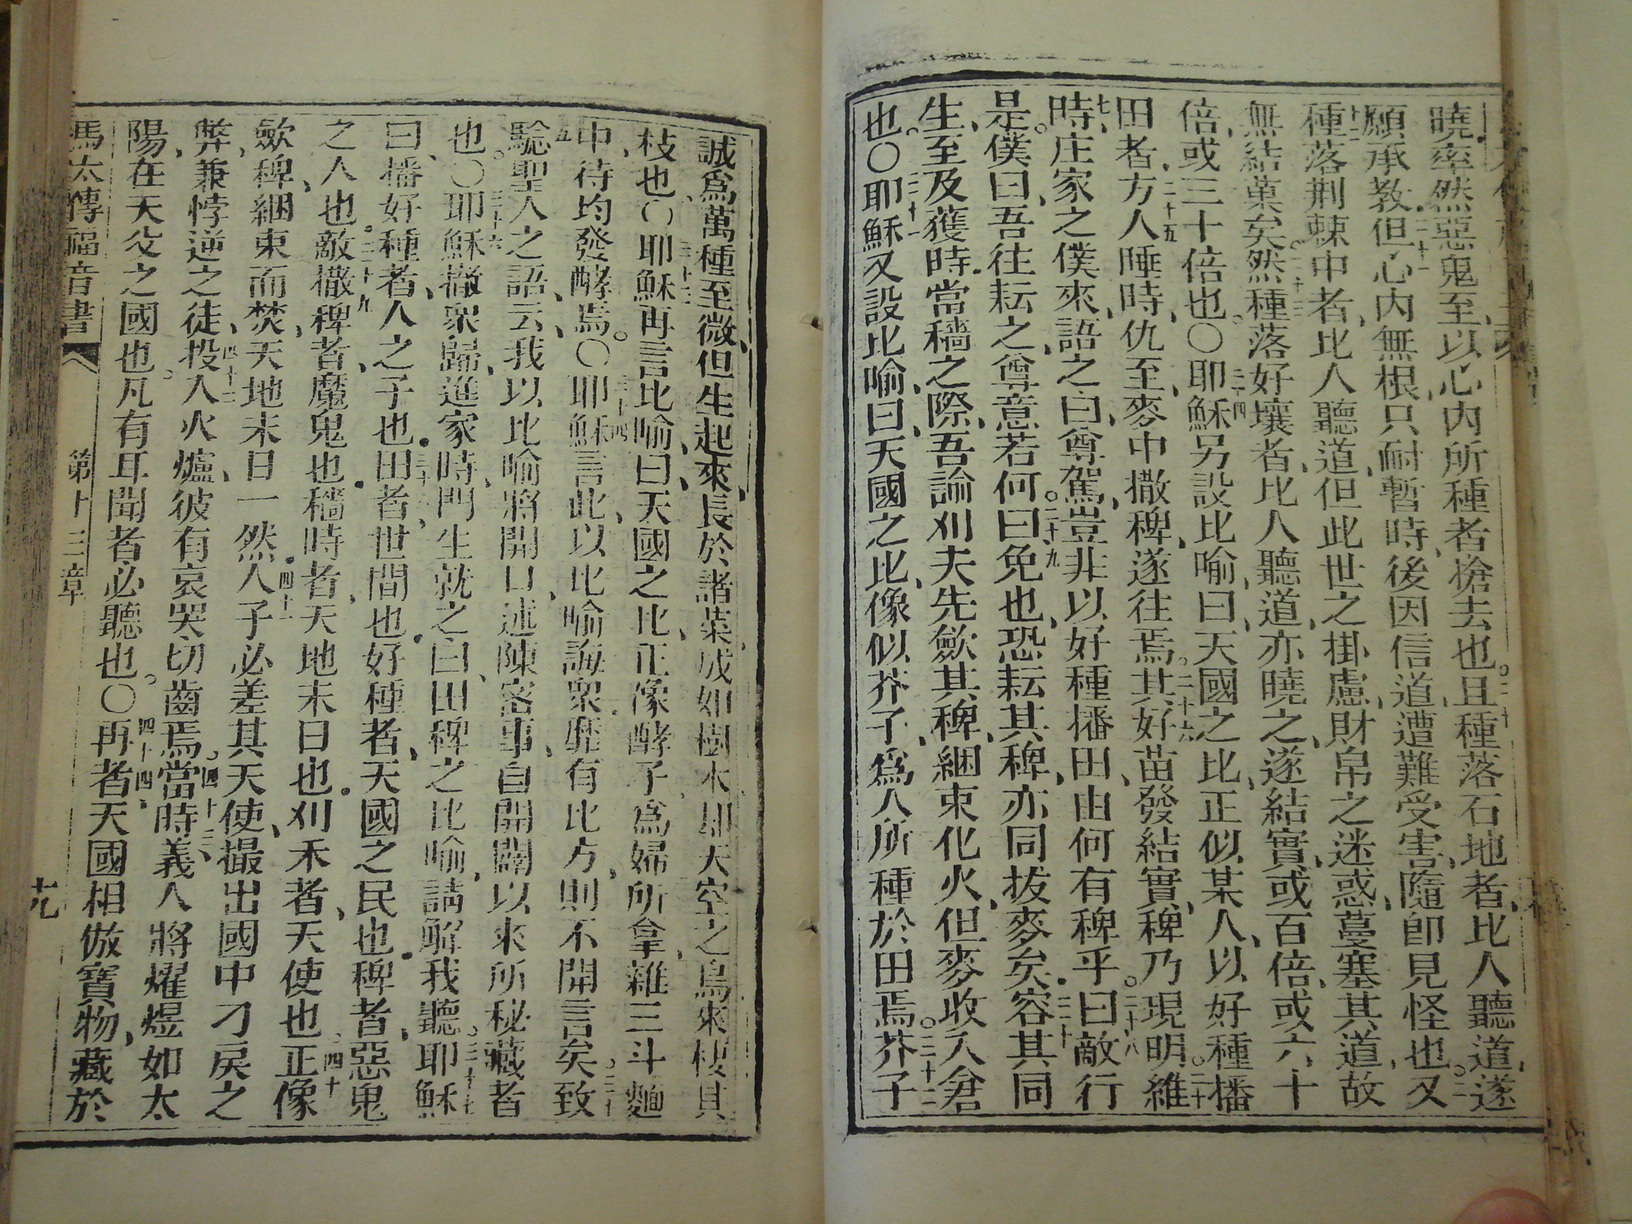 曉率然惡鬼至以心內所種者搶去也。二十且種落石地者比人聽道遂
願承教二十一但心內無根只耐暫時後因信道遭難受害隨卽見怪也二十二又
種落荆棘中者比人聽道但此世之掛慮財帛之迷惑蔓塞其道故
無結菓矣二十三然種落好壤者比人聽道亦曉之遂結實或百倍或六十
倍或三十倍也〇二十四耶穌另設比喻曰天國之比正似某人以好種播
田者二十五方人睡時仇至麥中撒稗遂往焉二十六其好苗發結實稗乃現明二十七維
時庄家之僕來語之曰尊駕豈非以好種播田由何有稗乎二十八曰敵行
是僕曰吾往耘之尊意若何二十九曰免也恐耘其稗亦同拔麥矣三十容其同
生至及獲時當穡之際吾論刈夫先歛其稗綑束化火但麥收入倉
也〇三十一耶穌又設比喻曰天國之比像似芥子爲人所種於田焉三十二芥子
誠爲萬種至微但生起來長於諸菜成如樹木卽天空之鳥來棲其
枝也〇三十三耶穌再言比喻曰天國之比正像酵子爲婦所拿雜三斗麵
中待均發酵焉〇三十四耶穌言此以比喻誨衆靡有比方則不開言矣三十五致
驗聖人之語云我以比喻將開口述陳密事自開闢以來所秘藏者
也〇三十六耶穌撒衆歸進家時門生就之曰田稗之比喻請解我聽三十七耶穌
曰播好種者人之子也三十八田者世間也好種者天國之民也稗者惡鬼
之人也三十九敵撒稗者魔鬼也穡時者天地末日也刈禾者天使也四十正像
歛稗綑束而焚天地末日一然四十一人子必差其天使撮出國中刁戾之
弊兼悖逆之徒四十二投入火爐彼有哀哭切齒焉四十三當時義人將燿煜如太
陽在天父之國也凡有耳聞者必聽也〇四十四再者天國相倣寶物藏於
馬太傳福音書 第十三章 十九